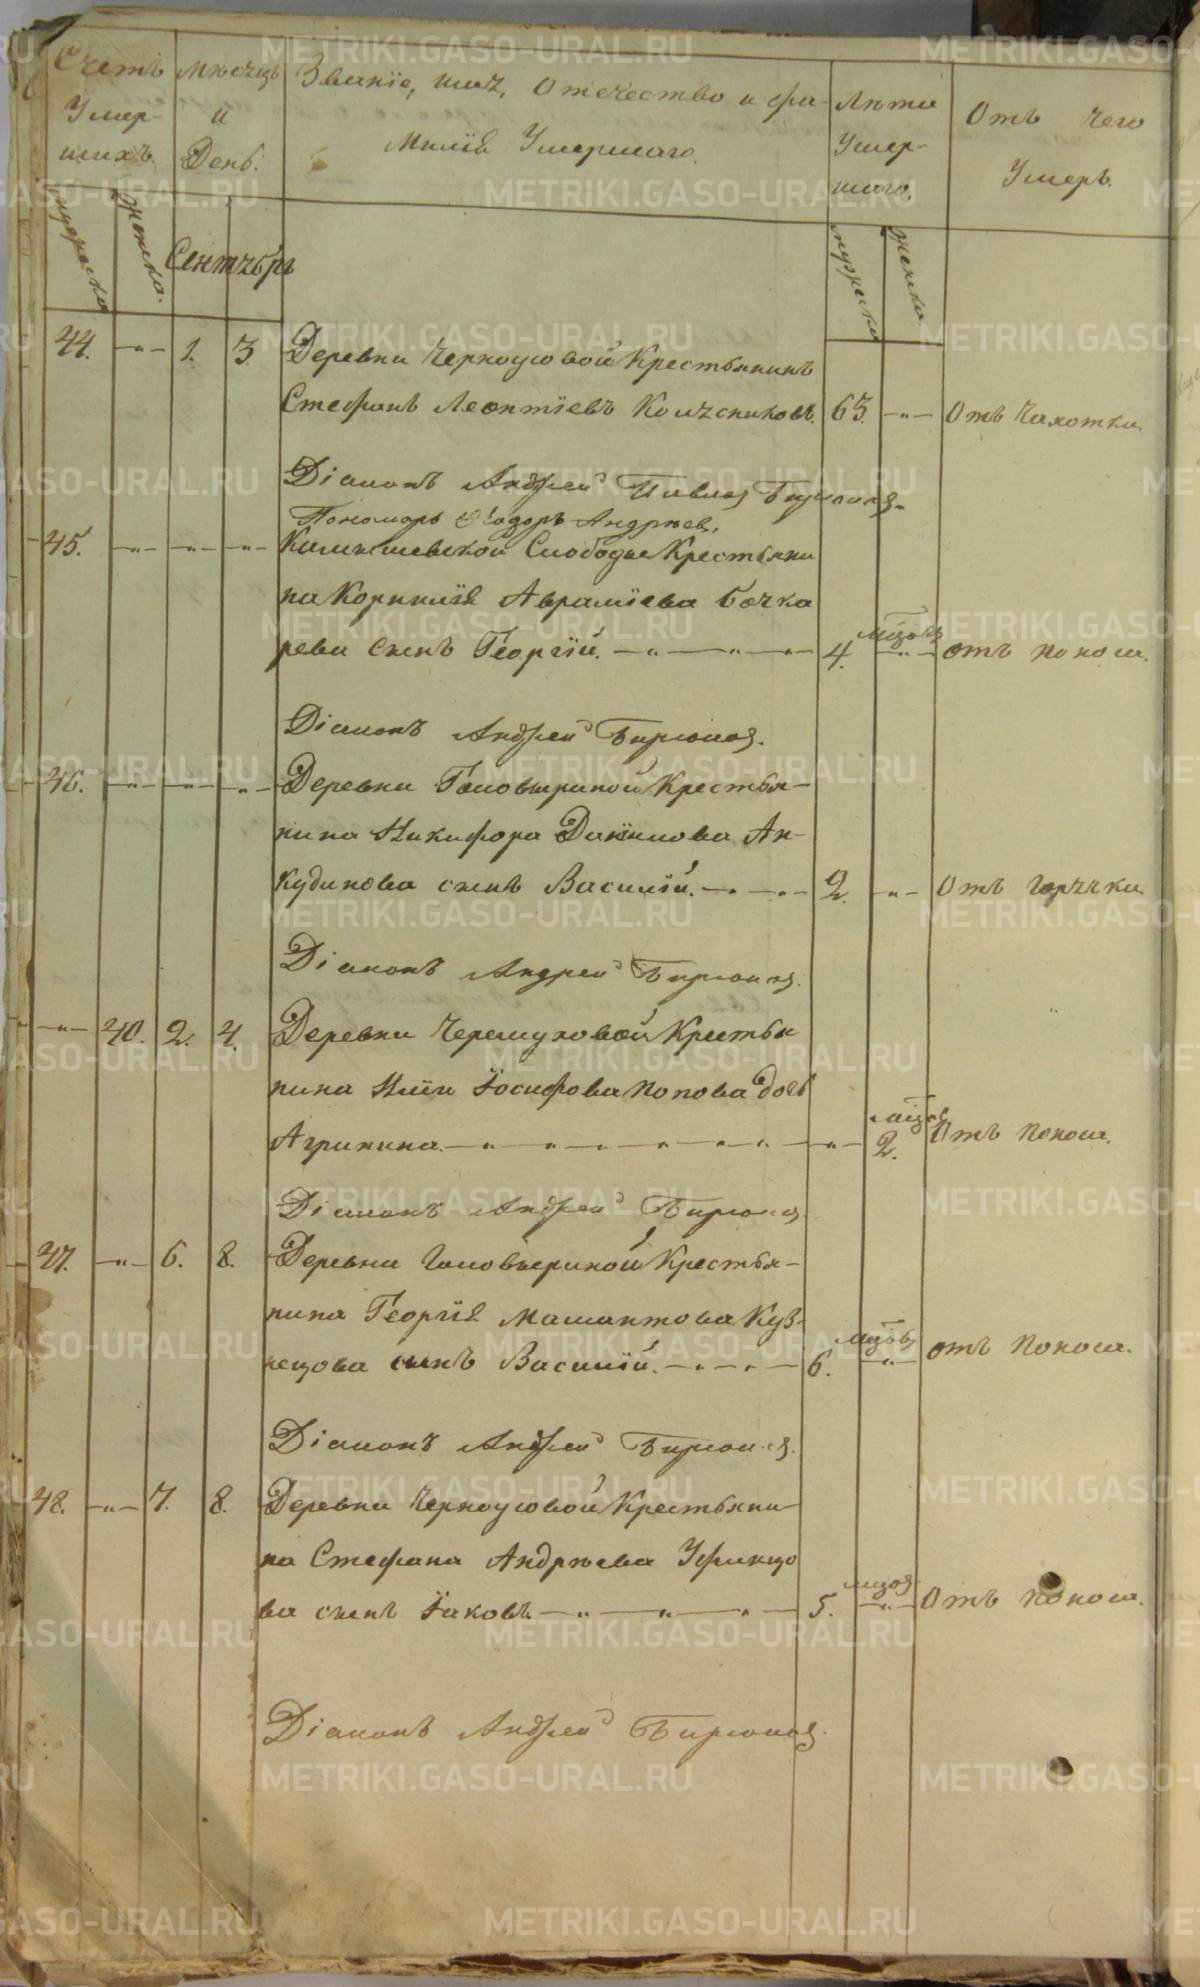 Счетъ Умер-шихъ.
Мѣсяцъ и День.
Званіе, имя, Отечество и фа-
милія Умершаго.
Лѣта Умер-шаго.
Отъ чего Умеръ.
мужеска
женска.
Сентябрь
мужеска
женска
44. —"— 1. 3. Деревни Черноусовой Крестьянинъ
Стефанъ Леонтіевъ Колесниковъ. 63. —"— Отъ чахотки.
Діаконъ Андрей
Пономарь Ѳеодоръ Андреев.
45. —"— —"— —"— Камышевской Слободы Крестьяни
на Корнилія Аврамїева Бочка
рева сынъ Георгій. —"— —"— 4. мцовъ —"— отъ поноса.
Діаконъ Андрей Бирюков.
46. —"— —"— —"— Деревни Головыриной Крестья-
нина Никифора Данилова Ан-
кудинова сынъ Василій. —"— —"— 2. —"— Отъ горячки.
Діаконъ Андрей Бирюков.
—"— 40. 2. 4. Деревни Черемуховой Крестья
нина Иліи Іосифова Попова дочь
Агрипина. —"— —"— —"— 2. мцовъ Отъ поноса.
Діаконъ Андрей Бирюков.
47. —"— 6. 8. Деревни Головыриной Крестья-
нина Георгія Куз-
нецова сынъ Василій. —"— —"— 6. мцовъ —"— отъ поноса.
Діаконъ Андрей Бирюков.
48. —"— 7. 8. Деревни Черноусовой Крестьяни-
на Стефана Андреева Уфинцо
ва сынъ Іаковъ. —"— —"— —"— 5. мцовъ —"— Отъ поноса.
Діаконъ Андрей Бирюков.
METRIKI.GASO-URAL.RU